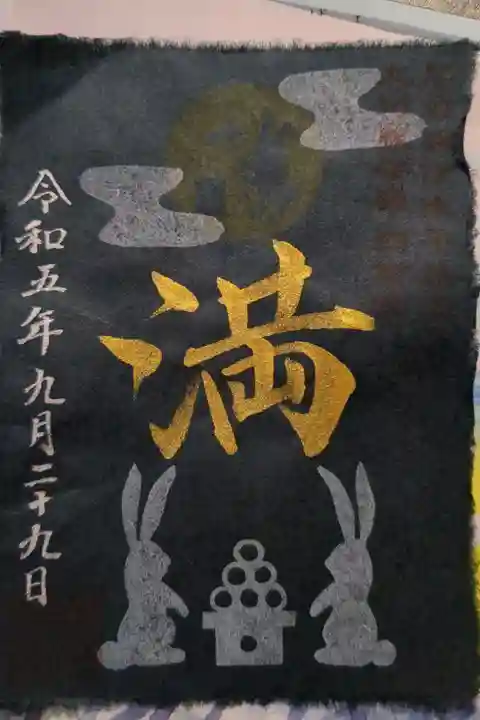 満
令和五年九月二十九日